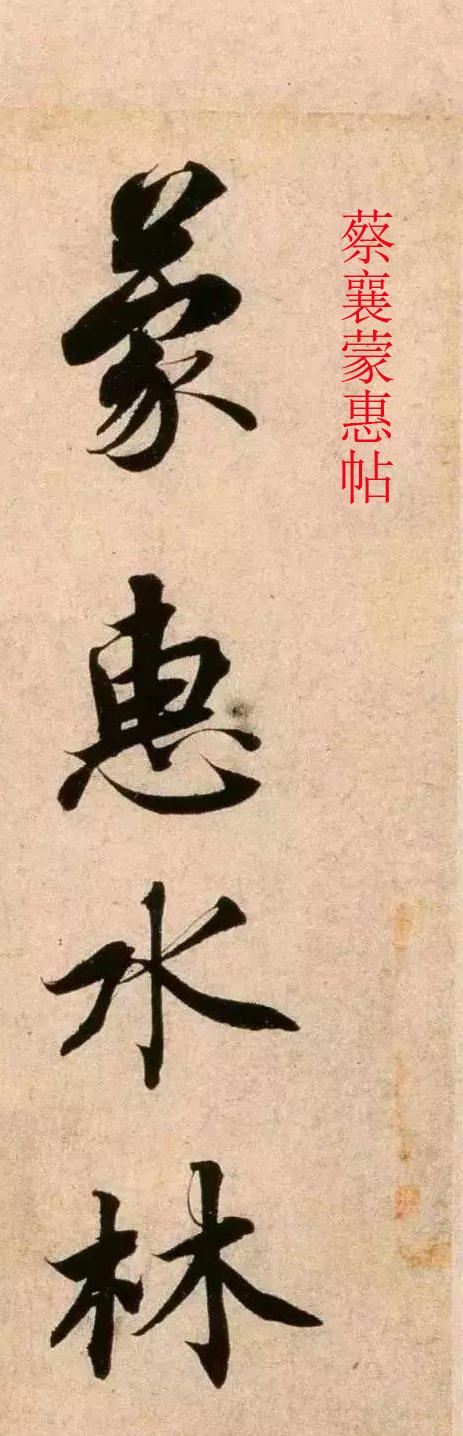 蔡襄蒙惠帖
蒙惠水林